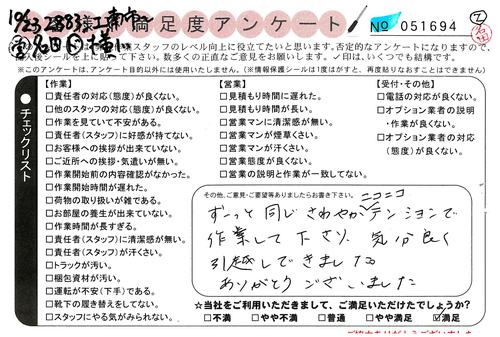 満足度アンケート
No 051694
スタッフのレベル向上に役立てたいと思います。否定的なアンケートになりますので、
シールを上に貼って下さい。数多くの正直なご意見をお願いします。✓印は、いくつでも結構です。
※このアンケートは、アンケート目的以外には使用いたしません。(※情報保護シールは1度がすと、再度貼りなおすことはできません)
チェックリスト
【作業】
□責任者の対応(態度)が良くない。
□他のスタッフの対応(態度)が良くない。
□作業を見ていて不安がある。
□責任者(スタッフ)に好感が持てない。
□お客様への挨拶が出来ていない。
□ご近所への挨拶・気遣いが無い。
□作業開始前の内容確認がなかった。
□作業開始時間が遅れた。
□荷物の取り扱いが雑である。
□お部屋の養生が出来ていない。
□作業時間が長すぎる。
□責任者(スタッフ)に清潔感が無い。
□責任者(スタッフ)が汗くさい。
□トラックが汚い。
□梱包資材が汚い。
□運転が不安(下手)である。
□靴下の履き替えをしてない。
□スタッフにやる気がみられない。
【営業】
□見積もり時間に遅れた。
□見積もり時間が長い。
□営業マンに清潔感が無い。
□営業マンが煙草くさい。
□営業マンが汗くさい。
□営業態度が良くない。
□営業の説明と作業が一致してない。
【受付・その他】
□電話の対応が良くない。
□オプション業者の説明
・作業が良くない。
□オプション業者の対応
(態度)が良くない。
その他、ご意見・ご要望等ありましたらお書き下さい。
ニコニコ
ずーっと同じさわやかテンションで
作業して下さり、気分良く
引越しできました。
ありがとうございました
☆当社をご利用いただきまして、ご満足いただけたでしょうか?
□不満 □やや不満 □普通 □やや満足 ☑満足